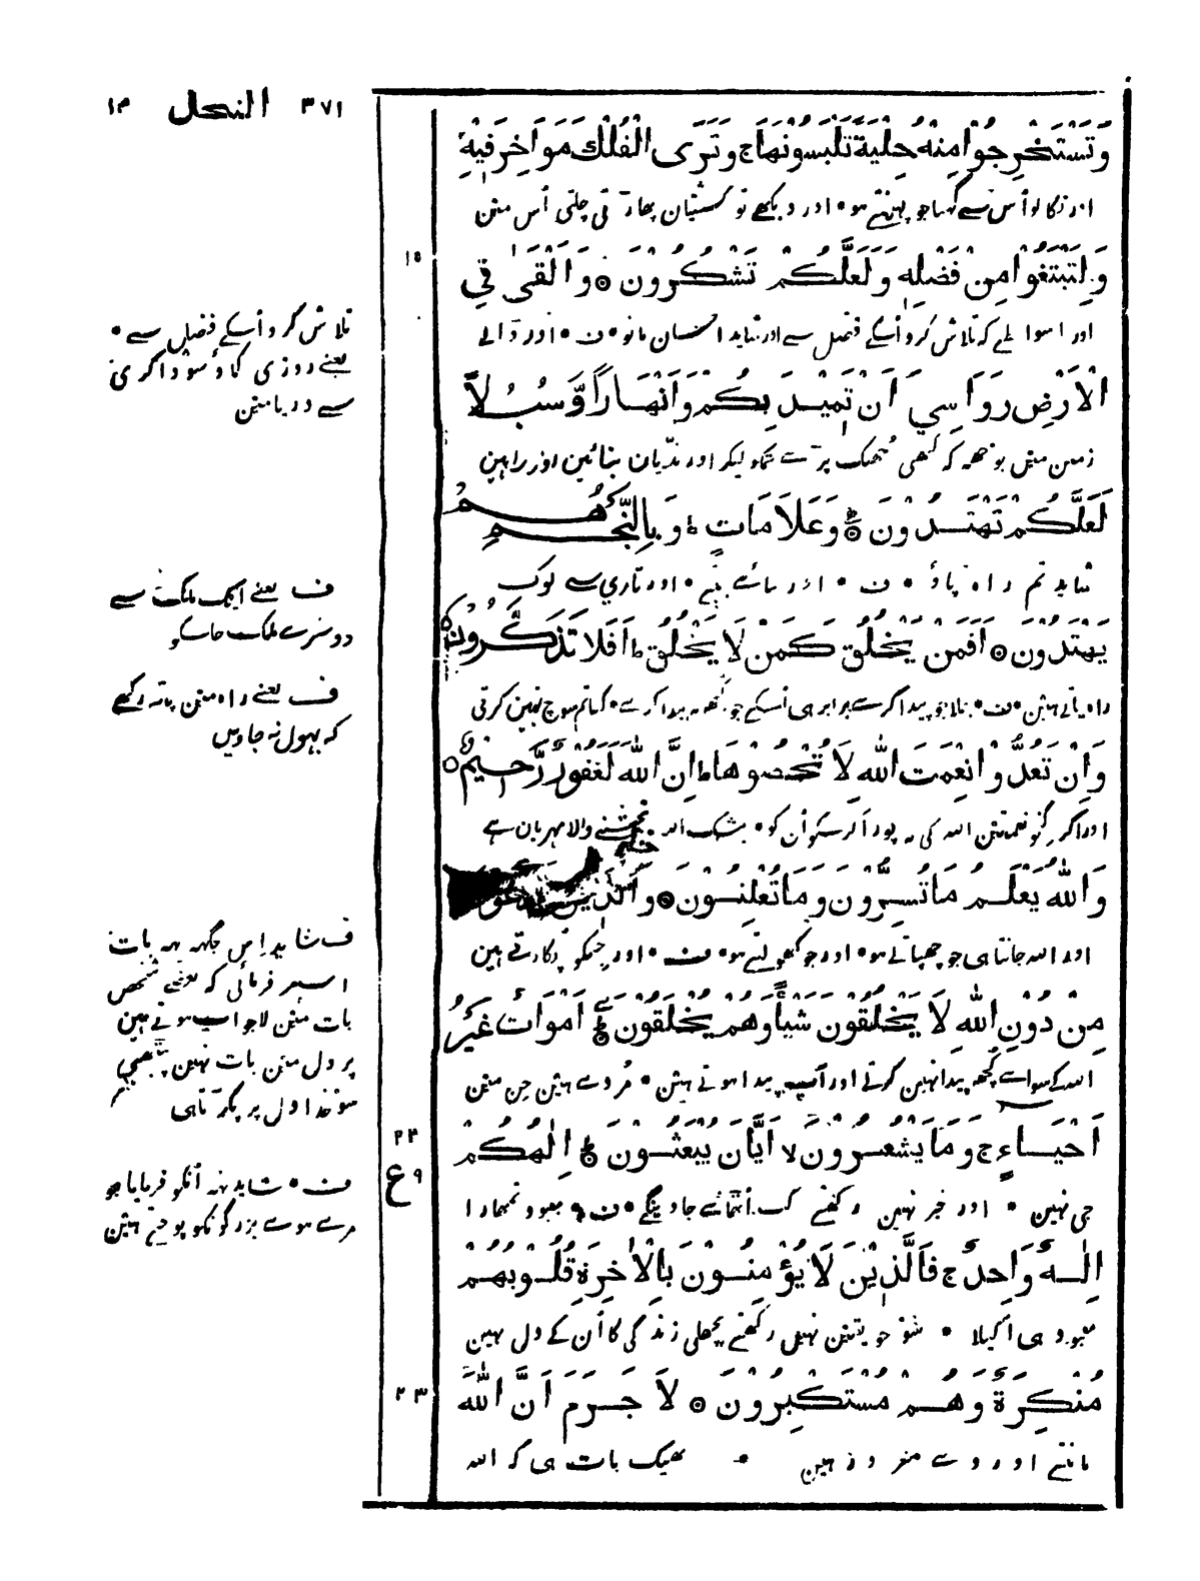 ٣٧١ النحل ١٣
وَتَسْتَخْرِجُوْا مِنْهُ حِلْيَةً تَلْبَسُوْنَهَا ج وَتَرَى الْفُلْكَ مَوَاخِرَ فِيْهِ
اور نکالو اُس سے گہنا جو پہنتے ہو • اور دیکھے تو کشتیان پھاڑتی چلتی اُس مین
١٥
وَلِتَبْتَغُوْا مِنْ فَضْلِهٖ وَلَعَلَّكُمْ تَشْكُرُوْنَ ۞ وَاَلْقٰى فِي
اور اسواسطے کہ تلاش کرو اُسکے فضل سے اور شاید احسان مانو • ف • اور ڈالے
الْاَرْضِ رَوَاسِيَ اَنْ تَمِيْدَ بِكُمْ وَاَنْهَارًا وَّسُبُلًا
زمین مین بوجھ کہ کبھی جھک پڑے تمکو لیکر اور ندیان بنائین اور راہین
لَعَلَّكُمْ تَهْتَدُوْنَ ۞ وَعَلَامَاتٍ ط وَبِالنَّجْمِ هُمْ
شاید تم راہ پاؤ • ف • اور بنائے پتے • اور تاری سے لوگ
يَهْتَدُوْنَ ۞ اَفَمَنْ يَّخْلُقُ كَمَنْ لَا يَخْلُقُ ط اَفَلَا تَذَكَّرُوْنَ ۞
راہ پاتے ہین • ف • بھلا جو پیدا کرے برابر ہی اُسکے جو کچھ نہ پیدا کرے • کیا تم سوچ نہین کرتی
وَاِنْ تَعُدُّوْا نِعْمَتَ اللّٰهِ لَا تُحْصُوْهَا ط اِنَّ اللّٰهَ لَغَفُوْرٌ رَّحِيْمٌ ۞
اور اگر گنو نعمتین اللہ کی نہ پورا کرسکو اُن کو • بیشک اللہ بخشنے والا مہربان ہے
وَاللّٰهُ يَعْلَمُ مَا تُسِرُّوْنَ وَمَا تُعْلِنُوْنَ ۞ وَالَّذِيْنَ يَدْعُوْنَ
اور اللہ جانتا ہی جو چھپاتے ہو • اور جو کھولتے ہو • ف • اور جنکو پکارتے ہین
مِنْ دُوْنِ اللّٰهِ لَا يَخْلُقُوْنَ شَيْـًٔا وَّهُمْ يُخْلَقُوْنَ ط اَمْوَاتٌ غَيْرُ
اللہ کے سواے کچھ پیدا نہین کرتے اور آپ پیدا ہوتے ہین • مُردے ہین جن مین
٢٢
اَحْيَاءٍ ج وَمَا يَشْعُرُوْنَ لا اَيَّانَ يُبْعَثُوْنَ ۞ اِلٰهُكُمْ
ع ٩
جی نہین • اور خبر نہین رکھتے کب اُٹھائے جاوینگے • ف • معبود تمہارا
اِلٰـهٌ وَّاحِدٌ ج فَالَّذِيْنَ لَا يُؤْمِنُوْنَ بِالْاٰخِرَةِ قُلُوْبُهُمْ
معبود ہی اکیلا • سو جو یقین نہیں رکھتے پچھلی زندگی کا اُن کے دل نہین
٢٣
مُّنْكِرَةٌ وَّهُمْ مُّسْتَكْبِرُوْنَ ۞ لَا جَرَمَ اَنَّ اللّٰهَ
مانتے اور وے مغرور ہین • ٹھیک بات ہی کہ اللہ
تلاش کرو اُسکے فضل سے •
یعنے روزی کماؤ سوداگری
سے دریا مین
ف یعنے ایک ملک سے
دوسرے ملک جاسکو
ف یعنے راہ مین پتہ رکھے
کہ بھول نہ جاویں
ف شاید اِس جگہہ یہہ بات
اسپر فرمائی کہ بعضے شخص
بات مین لاجواب ہوتے ہین
پر دل مین بات نہین بیٹھی
سو خدا دل پر پکڑتا ہی
ف • شاید یہہ اُنکو فرمایا جو
مرے ہوے بزرگونکو پوجتے ہین